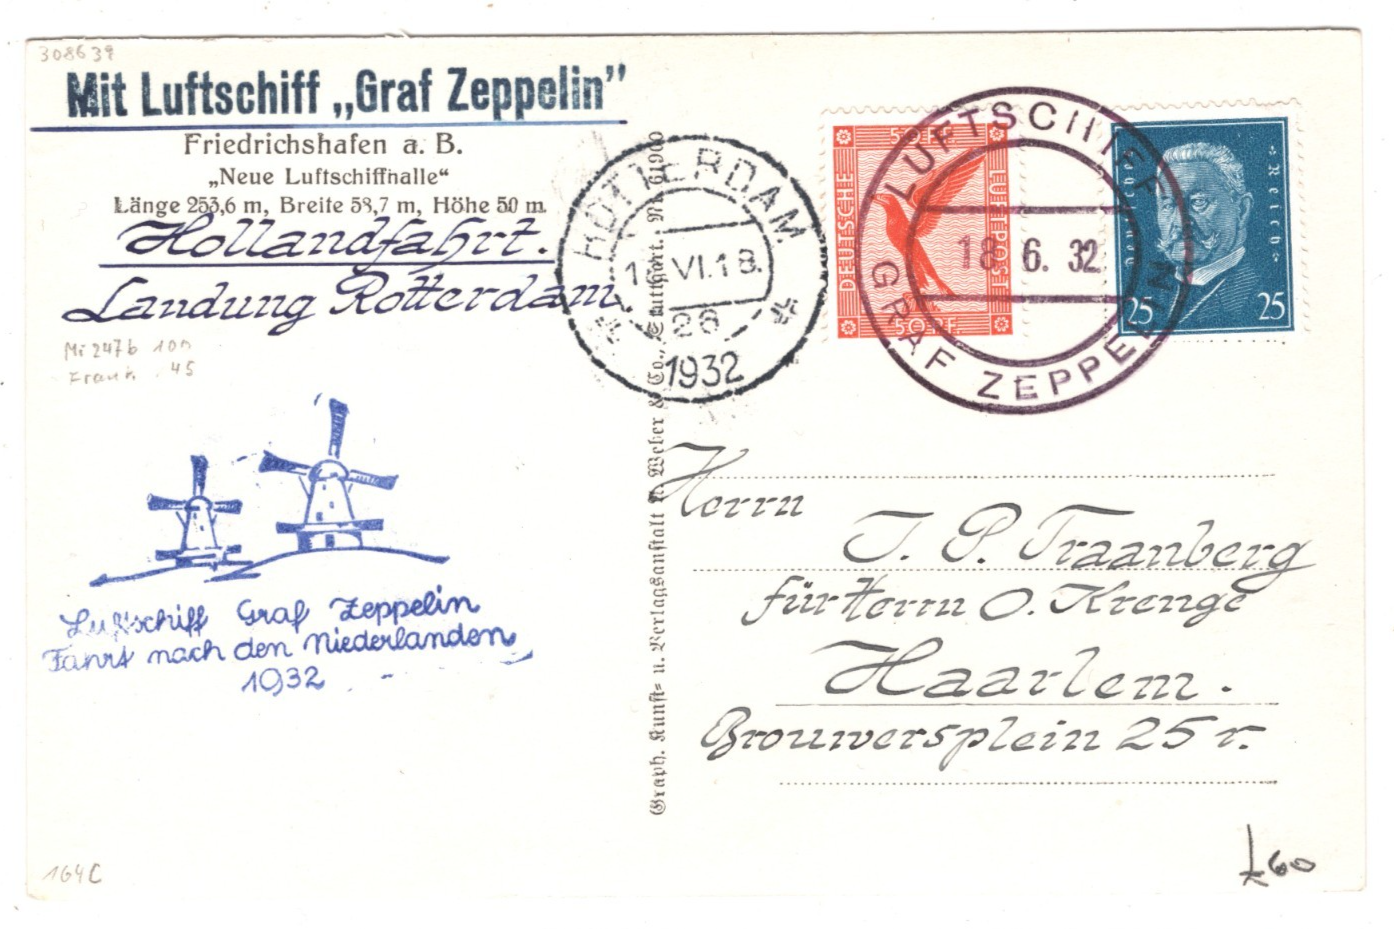 308639
Mit Luftschiff „Graf Zeppelin”
Friedrichshafen a. B.
„Neue Luftschiffhalle“
Länge 253,6 m, Breite 58,7 m, Höhe 50 m
Hollandfahrt.
Landung Rotterdam
Mi 247b 100
Frank. 45
Luftschiff Graf Zeppelin
Fahrt nach den Niederlanden
1932
164C
Graph. Kunst- u. Verlagsanstalt v. Weber & Co., Stuttgart. Nr. 61900
ROTTERDAM
VI.18.
26
1932
50 PF.
DEUTSCHE
LUFTPOST
50 PF.
LUFTSCHIFF
18. 6. 32
GRAF ZEPPELIN
Deutsches
Reich
25 25
Herrn
J. P. Traanberg
für Herrn O. Krenge
Haarlem.
Brouwersplein 25 r.
£60